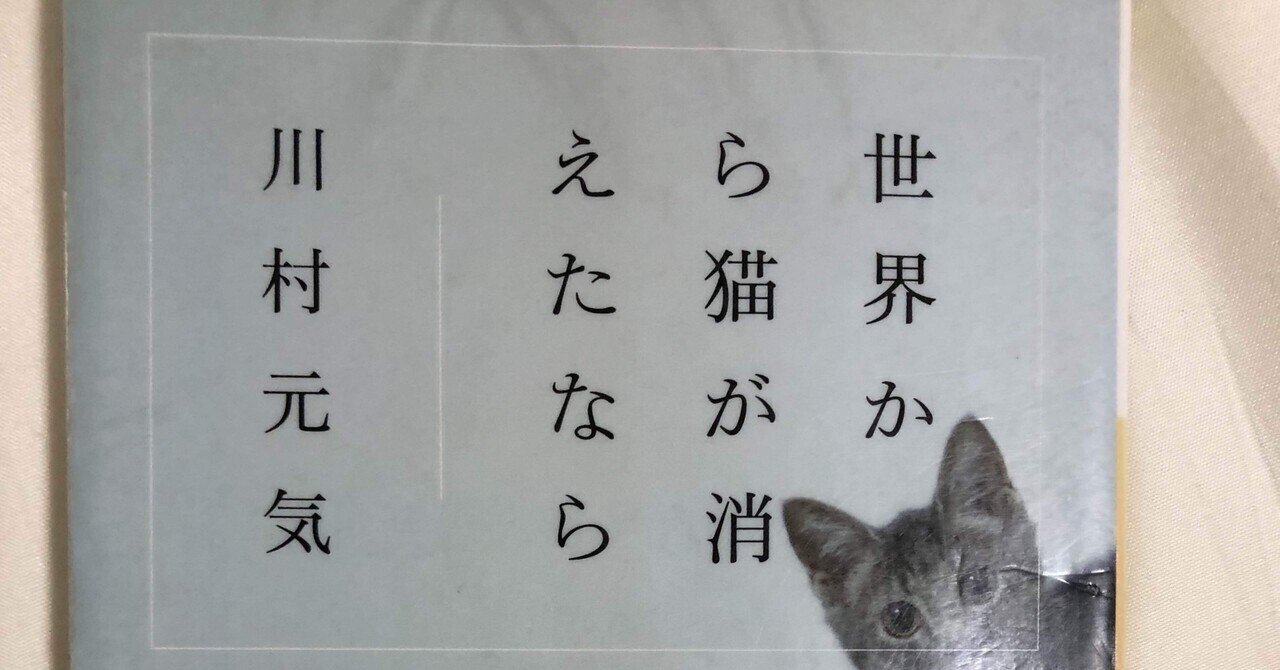 世界か
ら猫が消
えたなら
川村元気